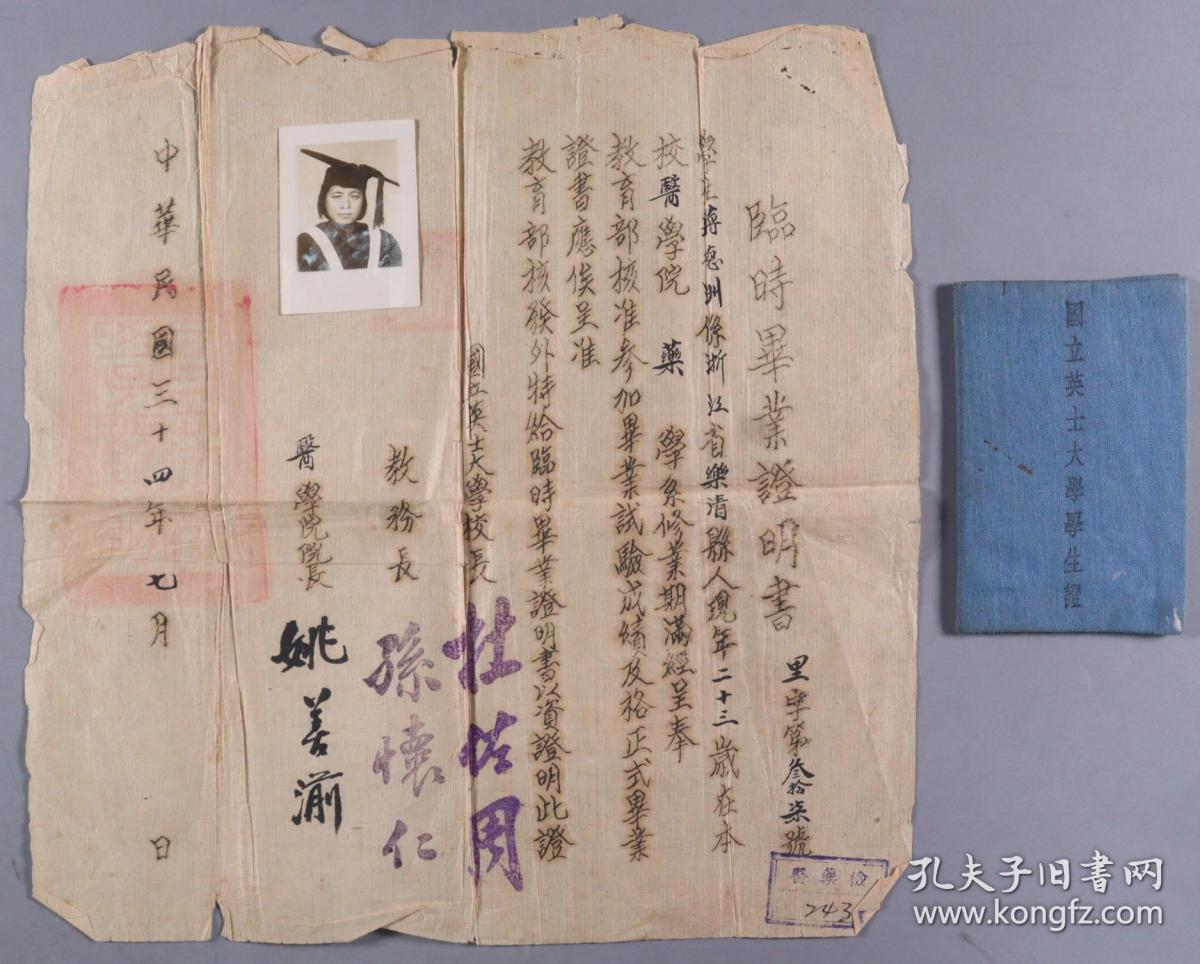 臨時畢業證明書
里字第叁拾柒號
學生蔣惠洲係浙江省樂清縣人現年二十三歲在本
校醫學院 藥 學系修業期滿經呈奉
教育部核准參加畢業試驗成績及格正式畢業
證書應俟呈准
教育部核發外特給臨時畢業證明書以資證明此證
國立英士大學校長 杜佐周
教務長 孫懷仁
醫學院院長 姚善湔
中華民國三十四年七月 日
醫藥檢
243
國立英士大學學生證
孔夫子旧书网
www.kongfz.com